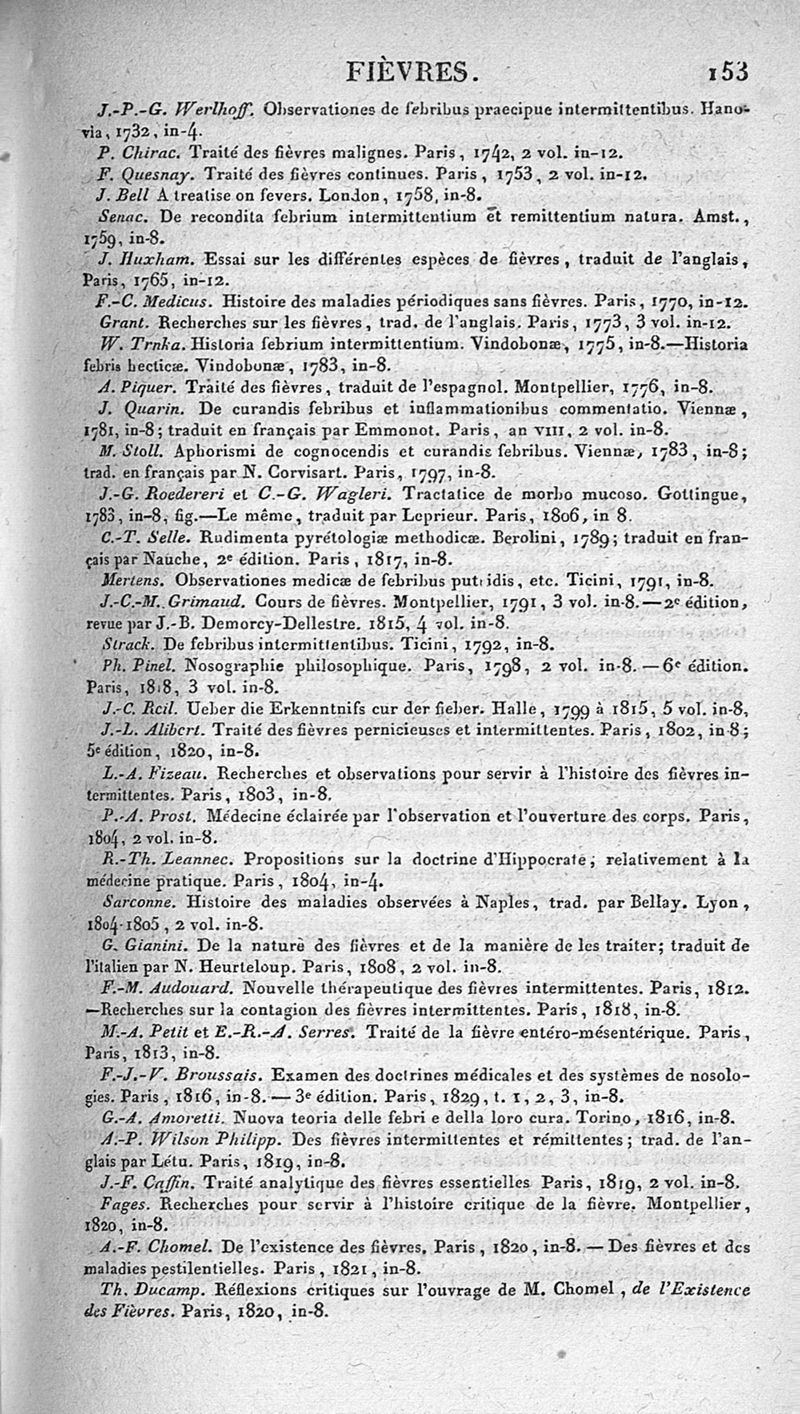 FIÈVRES. 153
J.-P.-G. Werlhoff. Observationes de febribus praecipue intermittentibus. Hano-
via, 1732, in-4.
P. Chirac. Traité des fièvres malignes. Paris, 1742, 2 vol. in-12.
F. Quesnay. Traité des fièvres continues. Paris, 1753, 2 vol. in-12.
J. Bell A treatise on fevers. London, 1758, in-8.
Senac. De recondita febrium intermittentium et remittentium natura. Amst.,
1759, in-8.
J. Huxham. Essai sur les différentes espèces de fièvres, traduit de l'anglais,
Paris, 1765, in-12.
F.-C. Medicus. Histoire des maladies périodiques sans fièvres. Paris, 1770, in-12.
Grant. Recherches sur les fièvres, trad. de l'anglais. Paris, 1773, 3 vol. in-12.
W. Trnka. Historia febrium intermittentium. Vindobonæ, 1775, in-8.—Historia
febris hecticæ. Vindobonæ, 1783, in-8.
A. Piquer. Traité des fièvres, traduit de l'espagnol. Montpellier, 1776, in-8.
J. Quarin. De curandis febribus et inflammationibus commentatio. Viennæ,
1781, in-8; traduit en français par Emmonot. Paris, an VIII, 2 vol. in-8.
M. Stoll. Aphorismi de cognocendis et curandis febribus. Viennæ, 1783, in-8;
trad. en français par N. Corvisart. Paris, 1797, in-8.
J.-G. Roedereri et C.-G. Wagleri. Tractatice de morbo mucoso. Gottingue,
1783, in-8, fig.—Le même, traduit par Leprieur. Paris, 1806, in 8.
C.-T. Selle. Rudimenta pyrétologiæ methodicæ. Berolini, 1789; traduit en fran-
çais par Nauche, 2e édition. Paris, 1817, in-8.
Mertens. Observationes medicæ de febribus putridis, etc. Ticini, 1791, in-8.
J.-C.-M. Grimaud. Cours de fièvres. Montpellier, 1791, 3 vol. in-8.—2e édition,
revue par J.-B. Demorcy-Dellestre. 1815, 4 vol. in-8.
Strack. De febribus intermittentibus. Ticini, 1792, in-8.
Ph. Pinel. Nosographie philosophique. Paris, 1798, 2 vol. in-8.—6e édition.
Paris, 1818, 3 vol. in-8.
J.-C. Reil. Ueber die Erkenntnifs cur der fieber. Halle, 1799 à 1815, 5 vol. in-8,
J.-L. Alibert. Traité des fièvres pernicieuses et intermittentes. Paris, 1802, in-8;
5e édition, 1820, in-8.
L.-A. Fizeau. Recherches et observations pour servir à l'histoire des fièvres in-
termittentes. Paris, 1803, in-8.
P.-A. Prost. Médecine éclairée par l'observation et l'ouverture des corps. Paris,
1804, 2 vol. in-8.
R.-Th. Leannec. Propositions sur la doctrine d'Hippocrate; relativement à la
médecine pratique. Paris, 1804, in-4.
Sarconne. Histoire des maladies observées à Naples, trad. par Bellay. Lyon,
1804-1805, 2 vol. in-8.
G. Gianini. De la nature des fièvres et de la manière de les traiter; traduit de
l'italien par N. Heurteloup. Paris, 1808, 2 vol. in-8.
F.-M. Audouard. Nouvelle thérapeutique des fièvres intermittentes. Paris, 1812.
—Recherches sur la contagion des fièvres intermittentes. Paris, 1818, in-8.
M.-A. Petit et E.-R.-A. Serres. Traité de la fièvre entéro-mésentérique. Paris,
Paris, 1813, in-8.
F.-J.-V. Broussais. Examen des doctrines médicales et des systèmes de nosolo-
gies. Paris, 1816, in-8.—3e édition. Paris, 1829, t. 1, 2, 3, in-8.
G.-A. Amoretti. Nuova teoria delle febri e della loro cura. Torino, 1816, in-8.
A.-P. Wilson Philipp. Des fièvres intermittentes et rémittentes; trad. de l'an-
glais par Létu. Paris, 1819, in-8.
J.-F. Caffin. Traité analytique des fièvres essentielles Paris, 1819, 2 vol. in-8.
Fages. Recherches pour servir à l'histoire critique de la fièvre. Montpellier,
1820, in-8.
A.-F. Chomel. De l'existence des fièvres. Paris, 1820, in-8.—Des fièvres et des
maladies pestilentielles. Paris, 1821, in-8.
Th. Ducamp. Réflexions critiques sur l'ouvrage de M. Chomel, de l'Existence
des Fièvres. Paris, 1820, in-8.